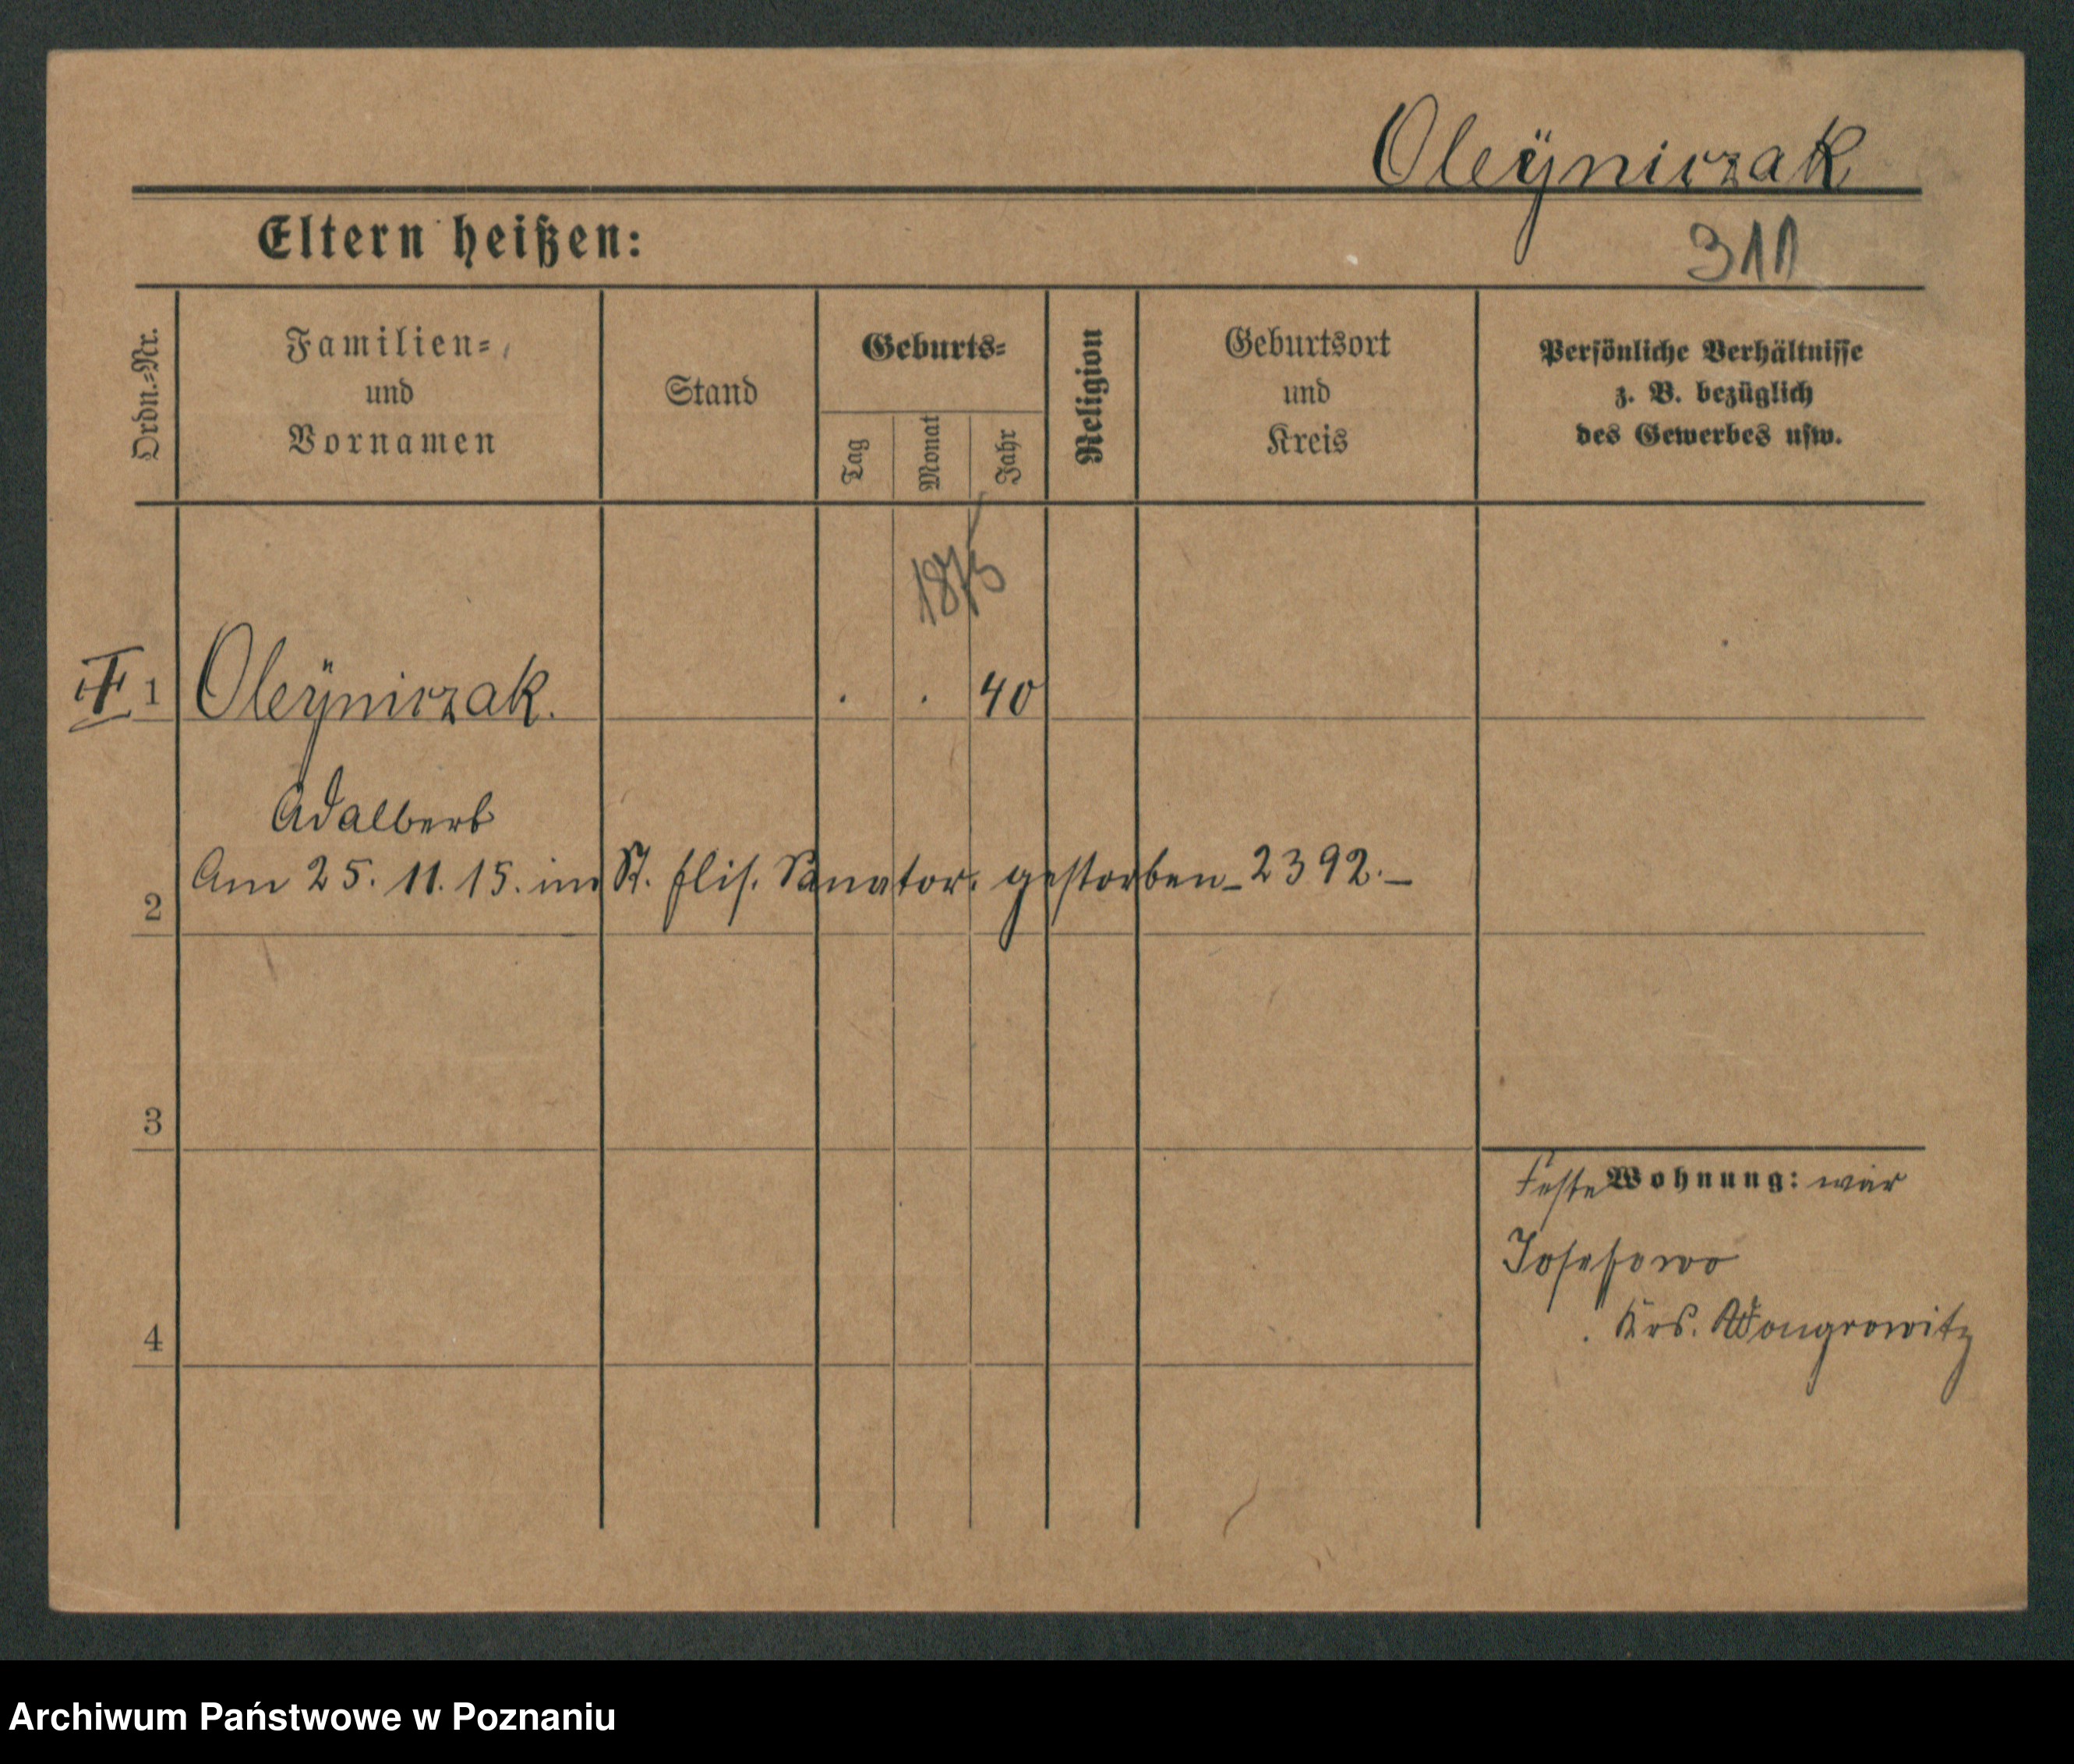 Oleÿniczak
Eltern heißen:
311
Ordn.=Nr.
Familien=
und
Vornamen
Stand
Geburts=
Tag
Monat
Jahr
Religion
Geburtsort
und
Kreis
Persönliche Verhältnisse
z. B. bezüglich
des Gewerbes usw.
1875
1 Oleÿniczak. . . 40
Adalbert
2 Am 25. 11. 15. im St. Elis. Sanator. gestorben – 2392. –
3
Feste Wohnung: war
Josefowo
4
Krs. Wongrowitz
Archiwum Państwowe w Poznaniu